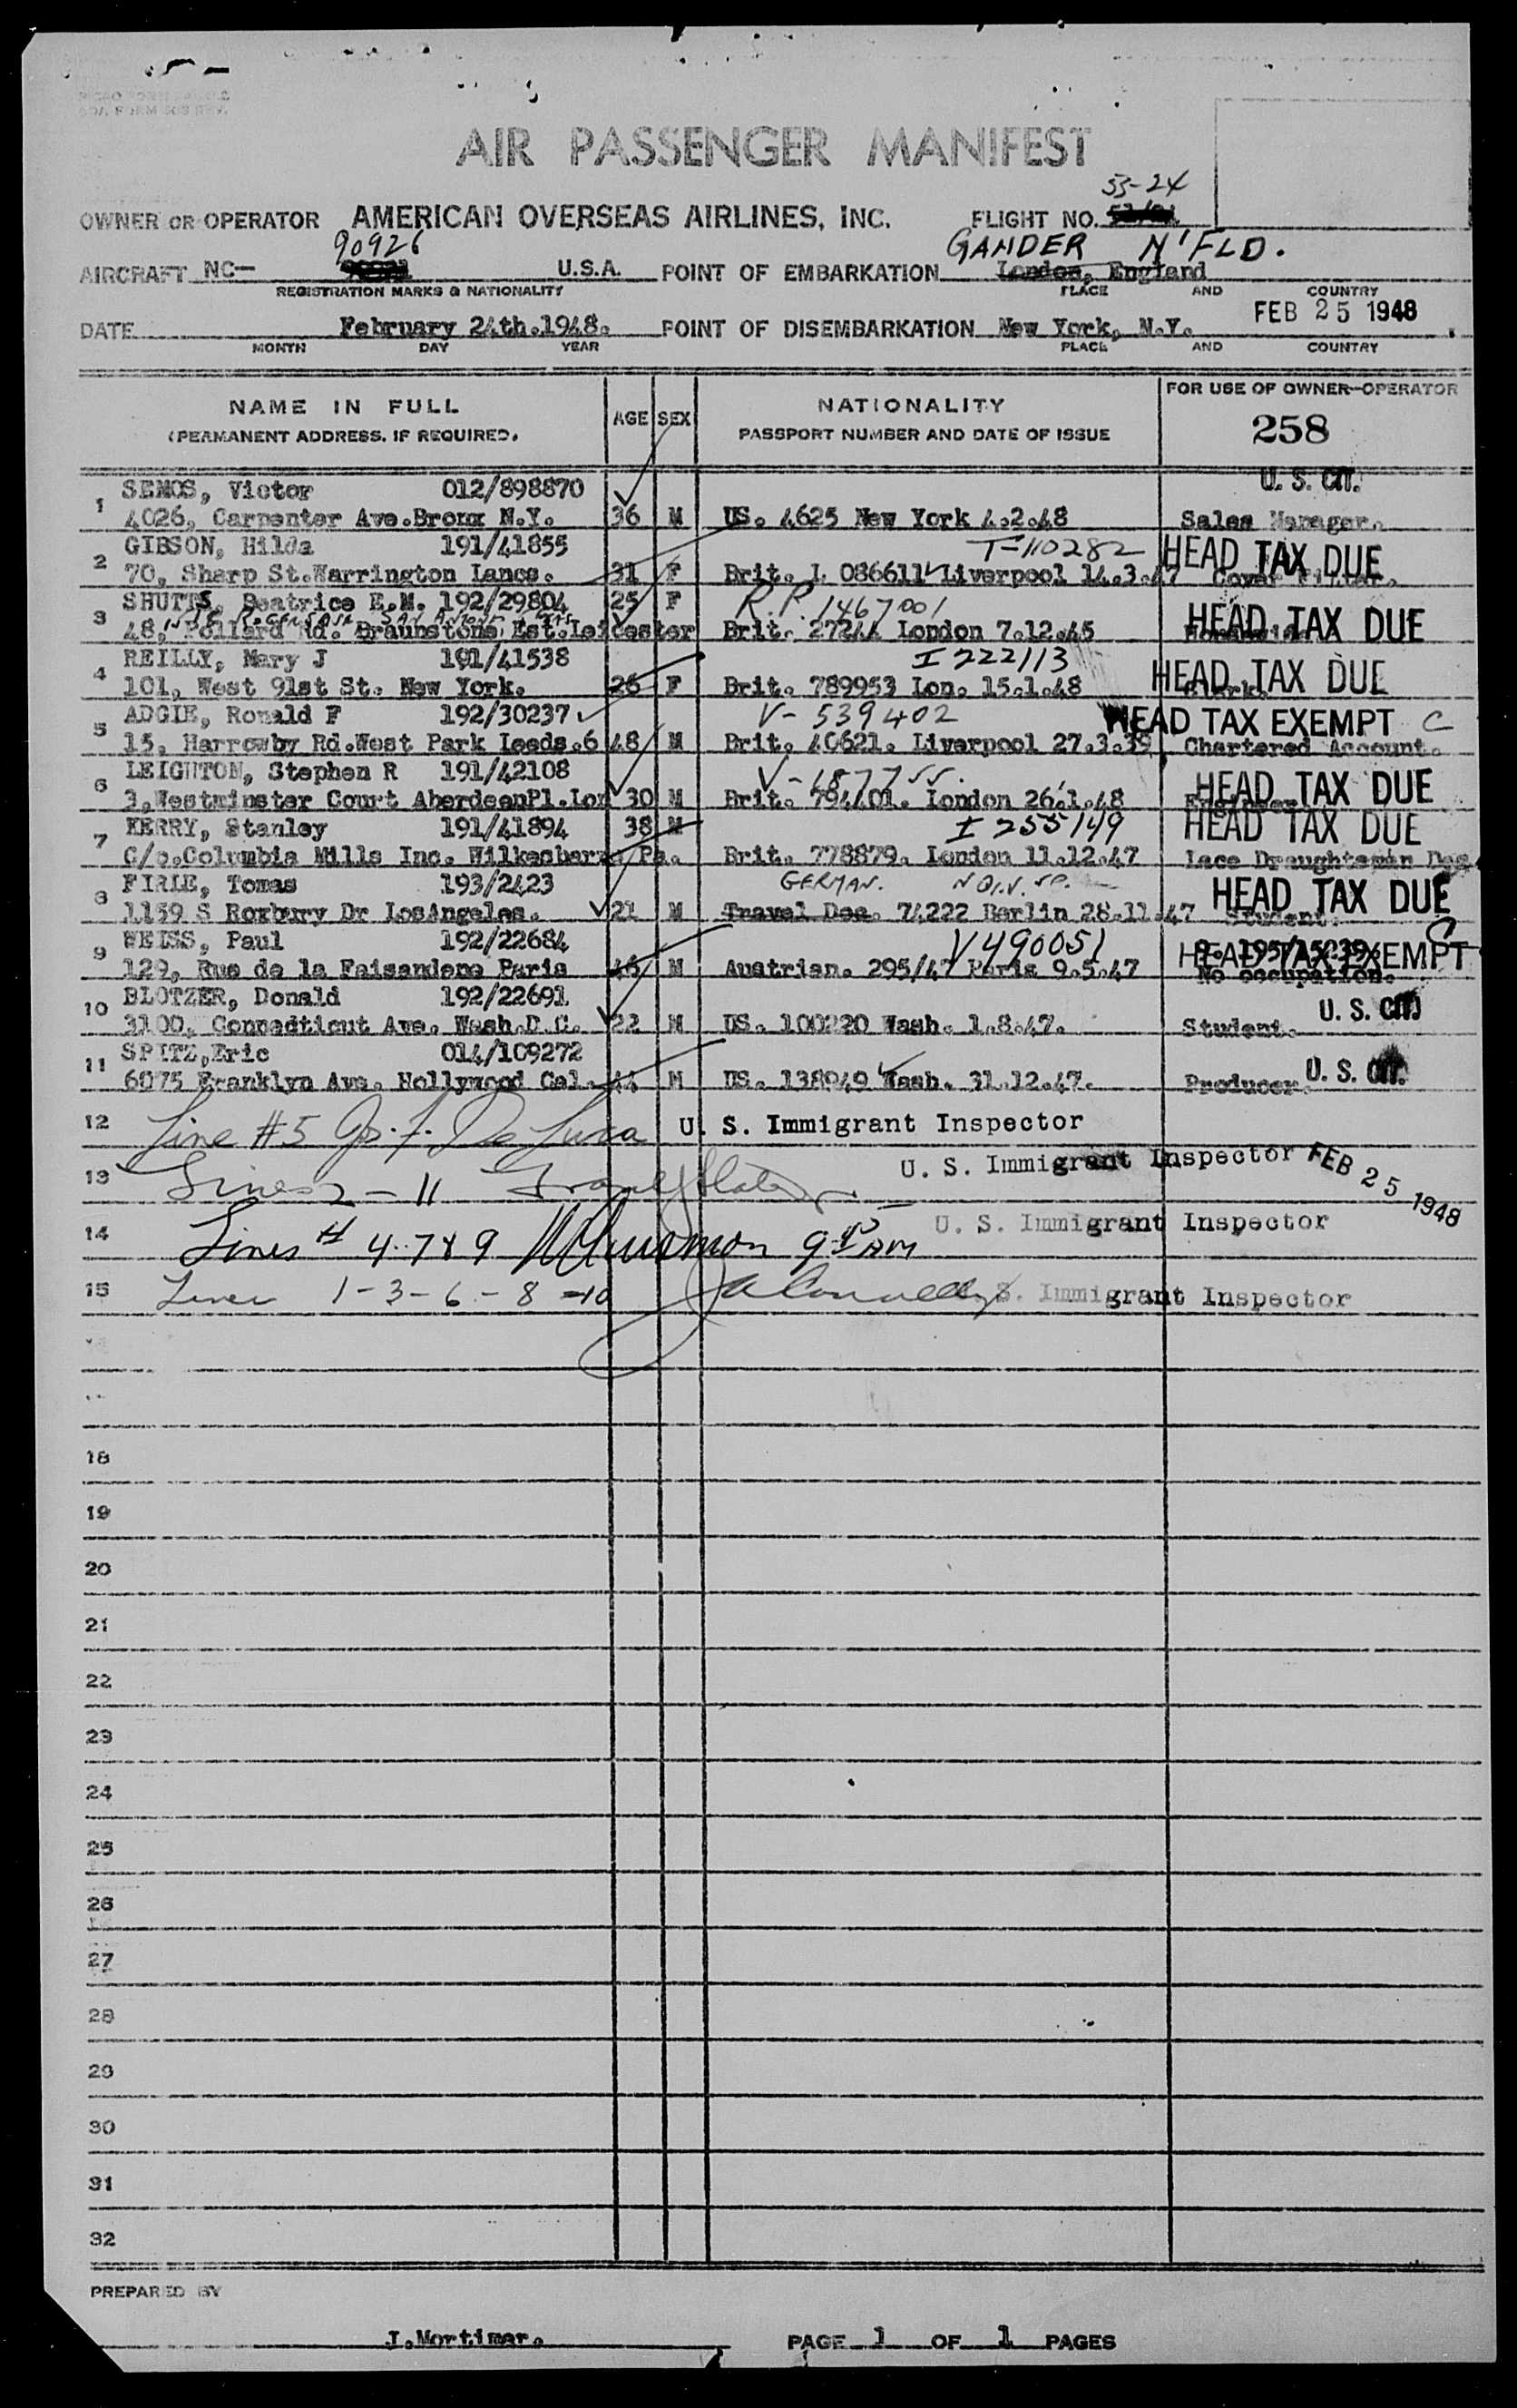 AIR PASSENGER MANIFEST
53-24
OWNER OR OPERATOR AMERICAN OVERSEAS AIRLINES, INC. FLIGHT NO.
90926 GANDER N'FLD.
AIRCRAFT NC- U.S.A. POINT OF EMBARKATION London, England
REGISTRATION MARKS & NATIONALITY PLACE AND COUNTRY
DATE February 24th.1948. POINT OF DISEMBARKATION New York, N.Y. FEB 25 1948
MONTH DAY YEAR PLACE AND COUNTRY
NAME IN FULL AGE SEX NATIONALITY FOR USE OF OWNER-OPERATOR
(PERMANENT ADDRESS, IF REQUIRED. PASSPORT NUMBER AND DATE OF ISSUE 258
1 SEMOS, Victor 012/898870 U. S. CIT.
4026, Carpenter Ave.Bronx N.Y. 36 M US. 4625 New York 4.2.48 Sales Manager.
2 GIBSON, Hilda 191/41855 T-110282 HEAD TAX DUE
70, Sharp St.Warrington Lancs. 31 F Brit. L 086611 Liverpool 14.3.47
3 SHUTTS, Beatrice E.M. 192/29804 25 F R.P. 1467001 HEAD TAX DUE
48, Pollard Rd. Braunstone Est.Leicester Brit. London 7.12.45
4 REILLY, Mary J 191/41538 I 222113 HEAD TAX DUE
101, West 91st St. New York. 26 F Brit. 789953 Lon. 15.1.48 Clerk.
5 ADGIE, Ronald F 192/30237 V- 539402 HEAD TAX EXEMPT C
15, Harrowby Rd.West Park Leeds.6 48 M Brit. 40621. Liverpool 27.3.39 Chartered Account.
6 LEIGHTON, Stephen R 191/42108 HEAD TAX DUE
3,Westminster Court AberdeenPl.Lon 30 M Brit. London 26.1.48 Engineer
7 KERRY, Stanley 191/41894 38 M I 255149 HEAD TAX DUE
C/o.Columbia Mills Inc. Wilkesbarre Pa. Brit. 778879. London 11.12.47 Lace Draughtsman Des.
8 FIRLE, Tomas 193/2423 GERMAN. HEAD TAX DUE
1159 S Roxbury Dr LosAngeles. 21 M Travel Doc. 74222 Berlin 28.11.47 Student.
9 WEISS, Paul 192/22684 V490051 HEAD TAX EXEMPT C
129, Rue de la Faisandere Paris 46 M Austrian. 295/47 Paris 9.5.47 No occupation.
10 BLOTZER, Donald 192/22691 U. S. CIT.
3100, Connedticut Ave. Wash.D.C. 22 M US. 100220 Wash. 1.8.47. Student.
11 SPITZ,Eric 014/109272 U. S. CIT.
6075 Franklyn Ave. Hollywood Cal. 44 M US. 138949 Wash. 31.12.47. Producer.
12 Line #5 Jos. F. De Luca U. S. Immigrant Inspector
13 Lines 2 - 11 U. S. Immigrant Inspector FEB 25 1948
14 Lines # 4.7 & 9 AM U. S. Immigrant Inspector
15 Lines 1-3-6-8-10 S. Immigrant Inspector
18
19
20
21
22
23
24
25
26
27
28
29
30
31
32
PREPARED BY
J.Mortimer. PAGE 1 OF 1 PAGES